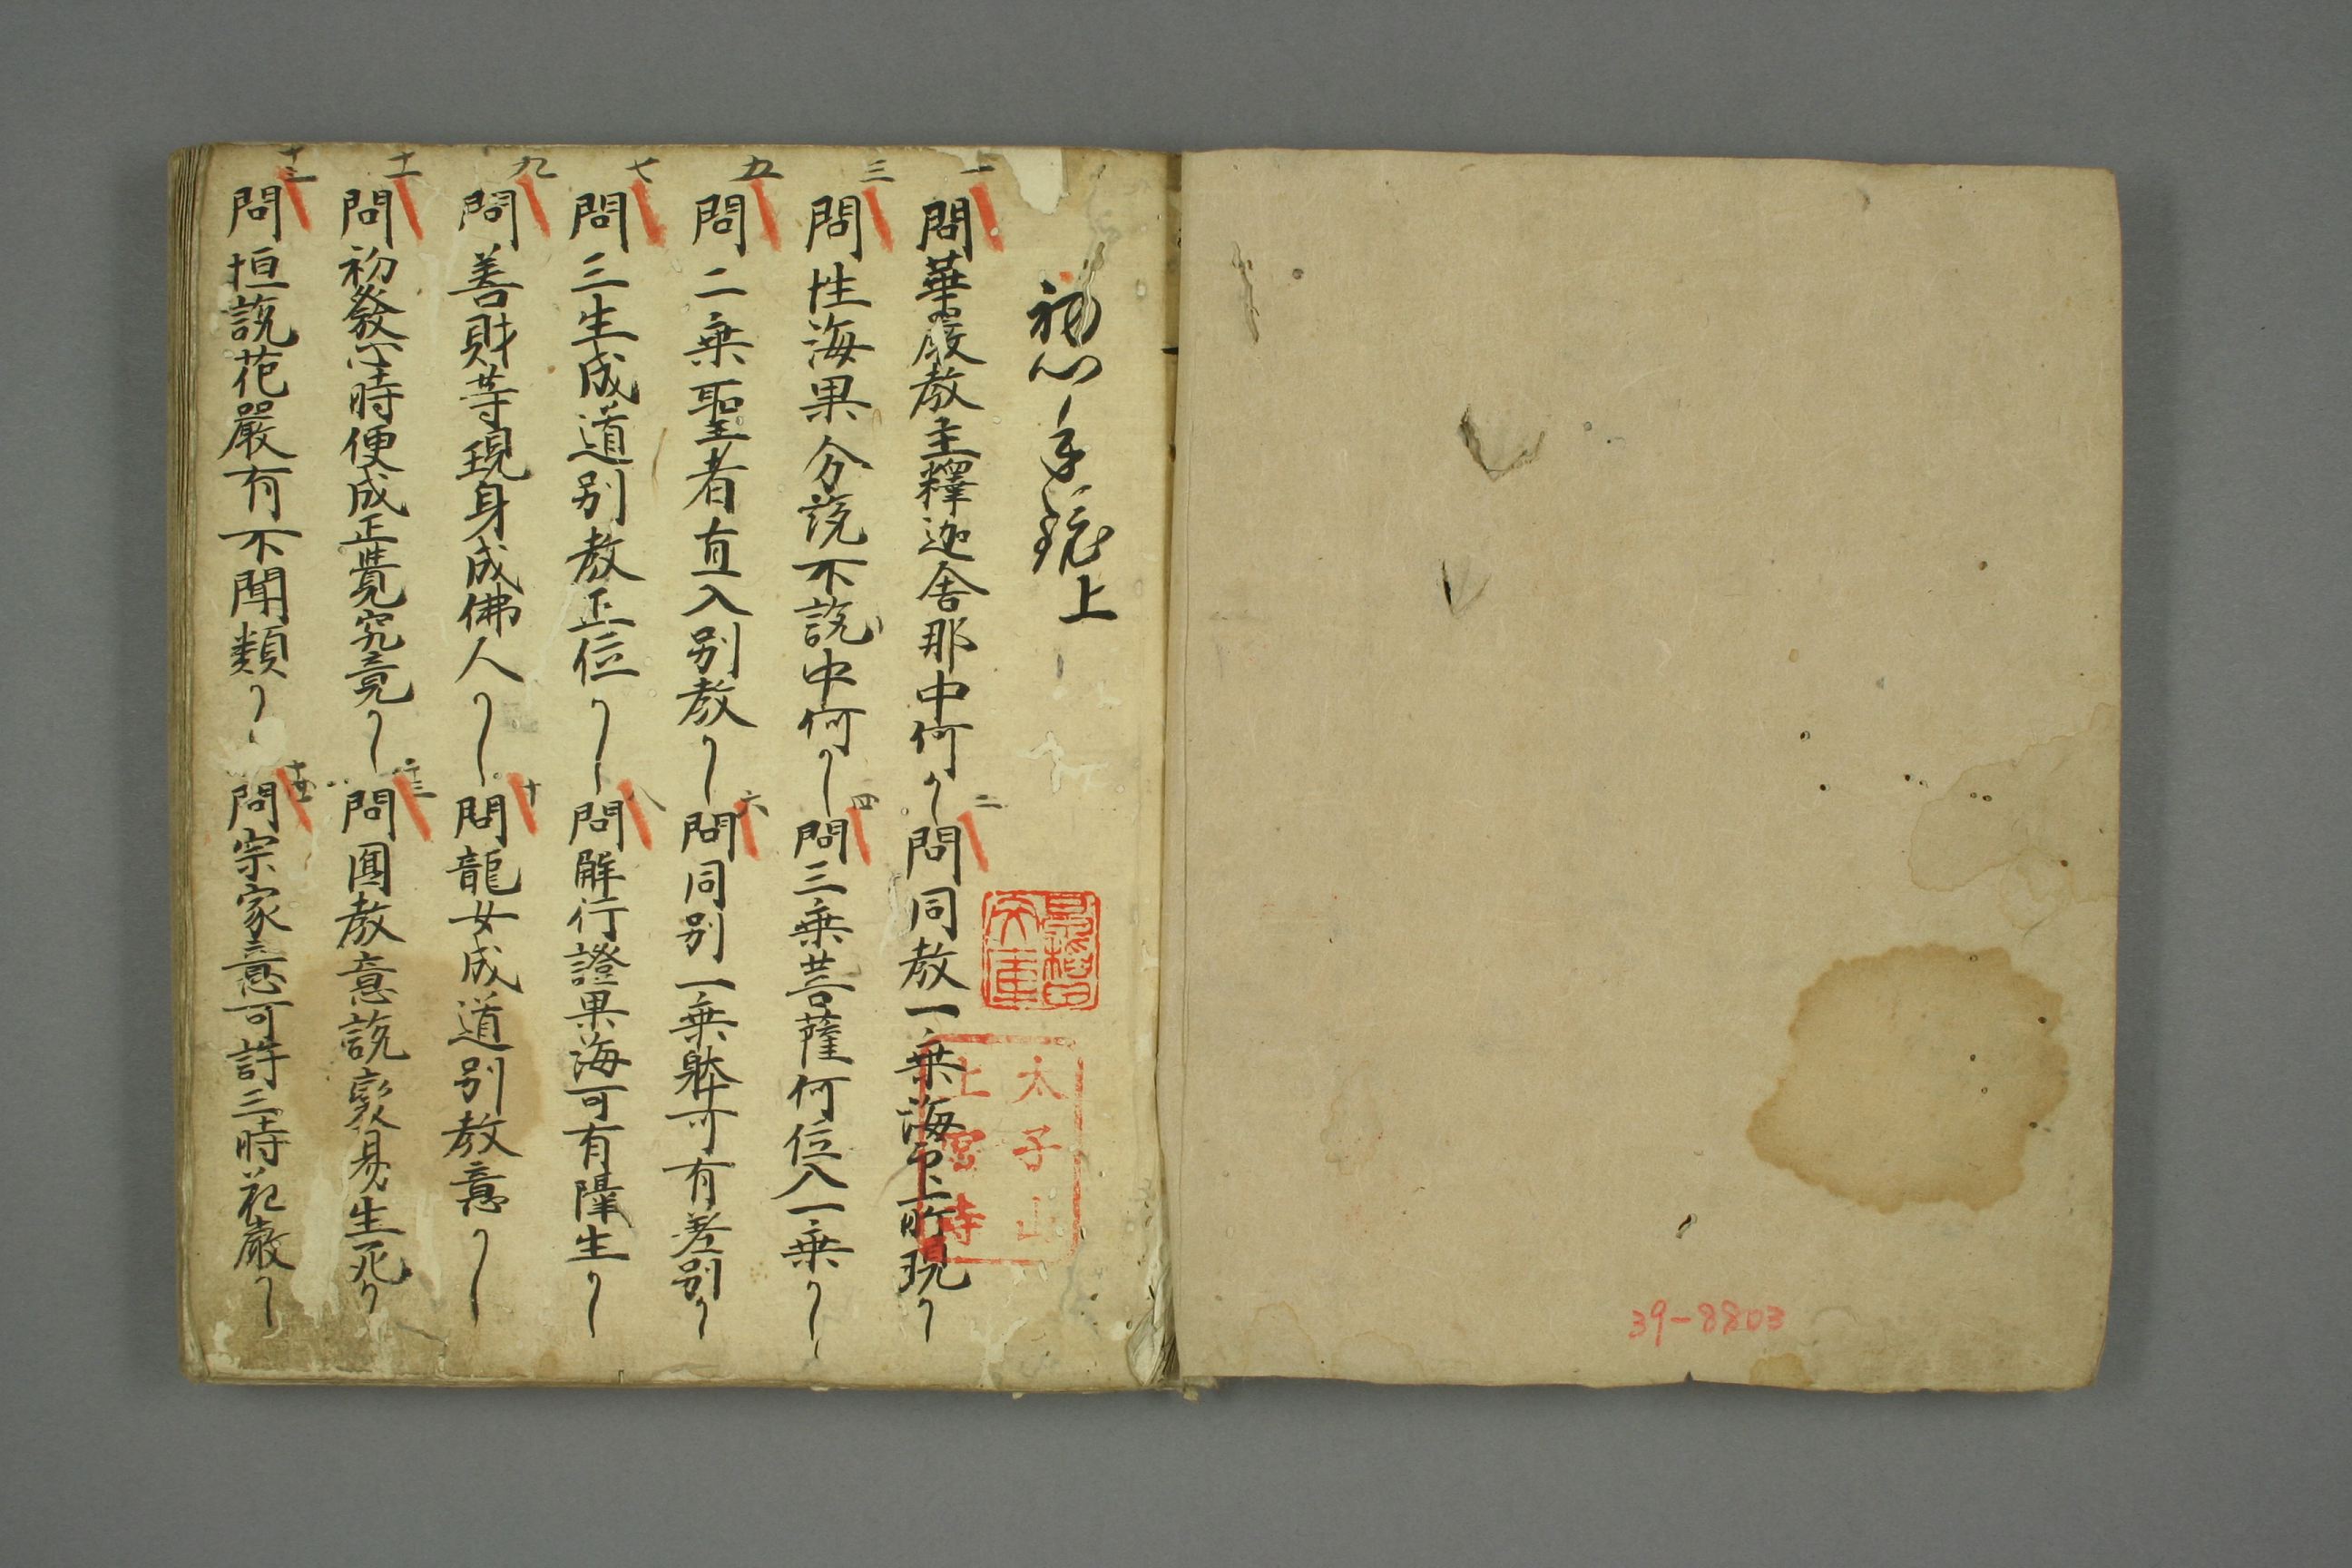 初心手鏡上
一 問華嚴教主釋迦舎那中何
二 問同教一乗海印所現
三 問性海果分説不説中何
四 問三乗菩薩何位入一乗
五 問二乗聖者直入別教
六 問同別一乗躰可有差別
七 問三生成道別教正位
八 問解行證果海可有隔生
九 問善財等現身成佛人
十 問龍女成道別教意
十一 問初發心時便成正覺究竟
十二 問圓教意説變易生死
十三 問垣説花嚴有不聞類
問宗家意可許三時花嚴
文庫
太子山
上宮寺
39-8803